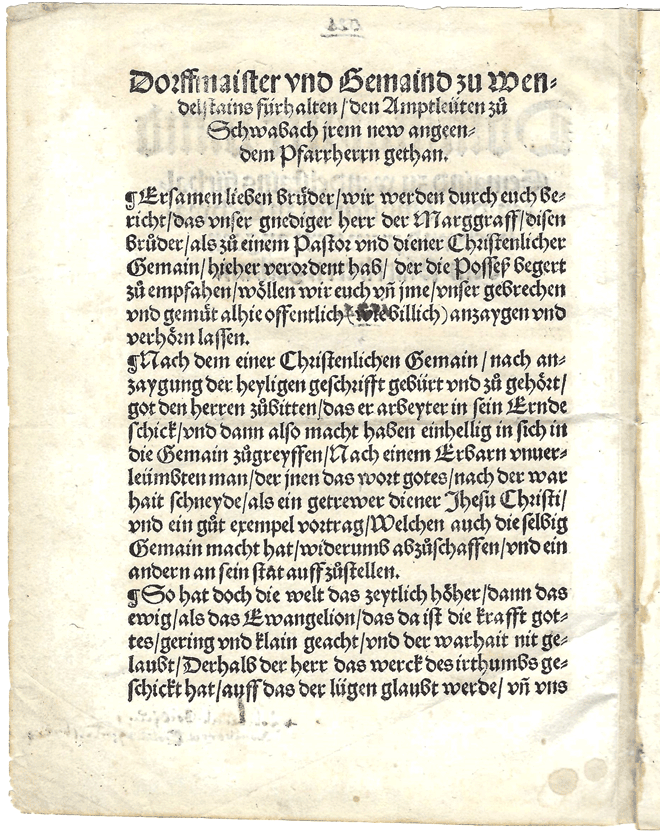 Dorffmaister vnd Gemaind zu Wen-
delstains fürhalten/den Amptleüten zů
Schwabach jrem new angeen-
dem Pfarrherrn gethan.
¶Ersamen lieben brüder/wir werden durch euch be-
richt/das vnser gnediger herr der Marggraff/disen
brůder/als zů einem Pastor vnd diener Christenlicher
Gemain/hieher verordent hab/ der die Posseß begert
zů empfahen/wöllen wir euch vñ jme/vnser gebrechen
vnd gemüt alhie offentlich (wie billich) anzaygen vnd
verhörn lassen.
¶Nach dem einer Christenlichen Gemain/nach an-
zaygung der heyligen geschrifft gebürt vnd zů gehört/
got den herren zůbitten/das er arbeyter in sein Ernde
schick/vnd dann also macht haben einhellig in sich in
die Gemain zůgreyffen/Nach einem Erbarn vnuer-
leümbten man/der jnen das wort gotes/nach der war
hait schneyde/als ein getrewer diener Jhesu Christi/
vnd ein gůt exempel vortrag/Welchen auch die selbig
Gemain macht hat/widerumb abzůschaffen/vnd ein
andern an sein stat auff zůstellen.
¶So hat doch die welt das zeytlich höher/dann das
ewig/als das Ewangelion/das da ist die krafft got-
tes/gering vnd klain geacht/vnd der warhait nit ge-
laubt/Derhalb der herr das werck des irthumbs ge-
schickt hat/auff das der lügen glaubt werde/ vñ vns